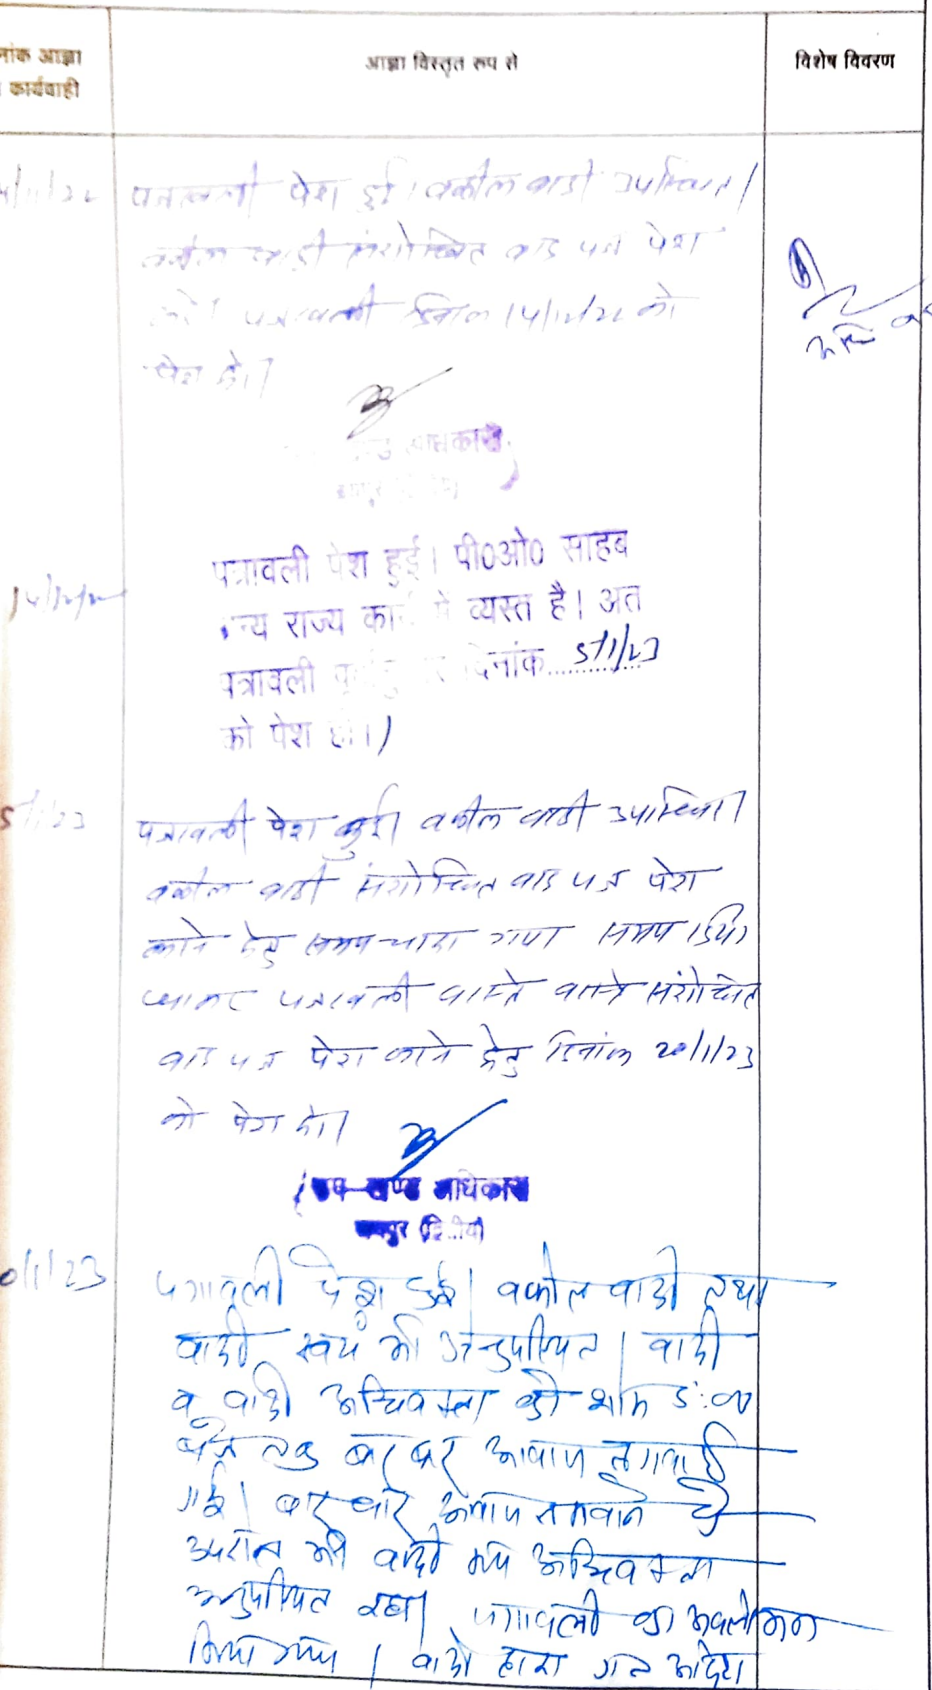 नांक आज्ञा
कार्यवाही
आज्ञा विस्तृत रूप से
विशेष विवरण
पत्रावली पेश हुई। वकील वादी उपस्थित।
वकील वादी संशोधित वाद पत्र पेश
करे। पत्रावली दिनांक 14/12/22 को
पेश हो।
पत्रावली पेश हुई। पी0ओ0 साहब
न्य राज्य कार्य में व्यस्त है। अत
पत्रावली दिनांक 5/1/23
को पेश हो।
5/1/23
पत्रावली पेश हुई। वकील वादी उपस्थित।
वकील वादी संशोधित वाद पत्र पेश
करने हेतु समय चाहा गया समय दिया
पत्रावली वास्ते वास्ते संशोधित
वाद पत्र पेश करने हेतु दिनांक 20/1/23
को पेश हो।
उप खण्ड अधिकारी
जयपुर (द्वितीय)
0/1/23
पत्रावली पेश हुई। वकील वादी तथा
वादी स्वयं भी अनुपस्थित। वादी
व वादी अधिवक्ता को शाम 5:00
बजे तक बार बार आवाज लगवाई
गई। बार बार आवाज लगवाने के
उपरांत भी वादी मय अधिवक्ता
अनुपस्थित रहा। पत्रावली का अवलोकन
किया गया। वादी द्वारा गत आदेश